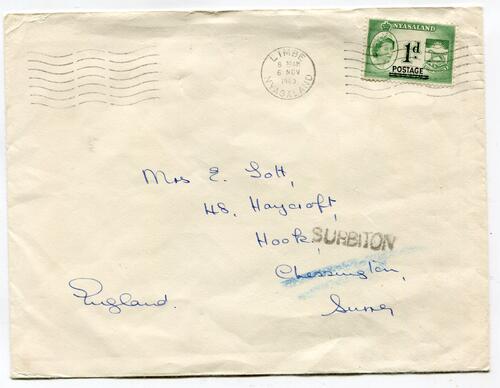 NYASALAND
1d
POSTAGE
LIMBE
8 30AM
6 NOV
1963
NYASALAND
Mrs E. Lott,
48, Haycroft,
Hook,
SURBITON
Chessington,
England.
Surrey